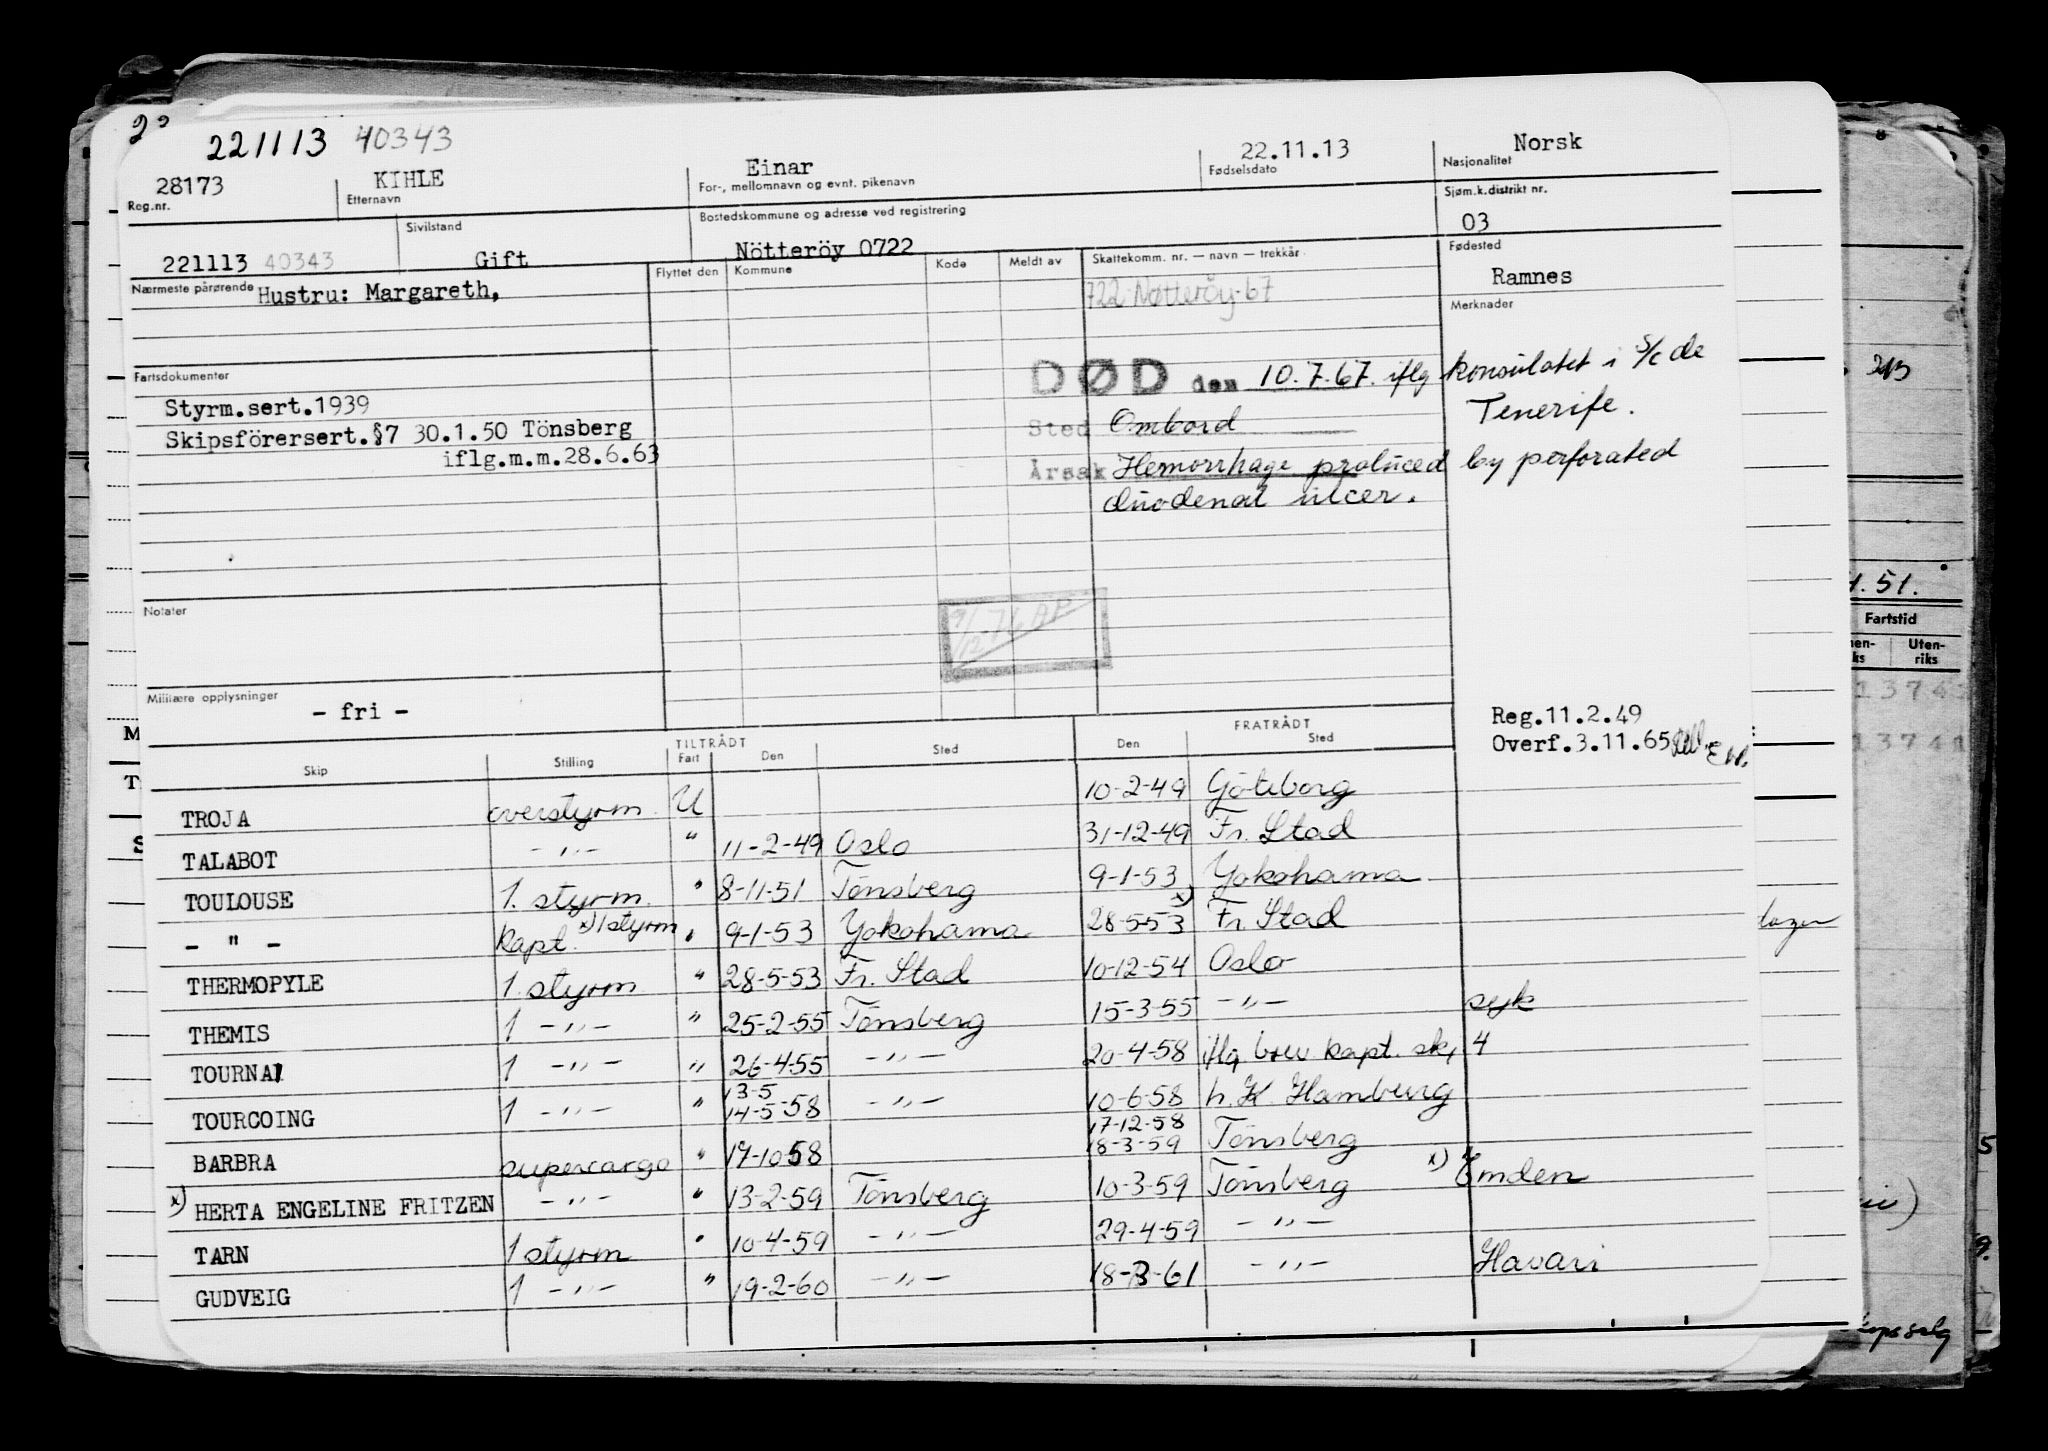 221113 40343
28173 KIHLE Einar 22.11.13 Norsk
Reg.nr. Etternavn For-, mellomnavn og evnt. pikenavn Fødselsdato Nasjonalitet
Sivilstand Bostedskommune og adresse ved registrering Sjøm.k.distrikt nr.
221113 40343 Gift Nötteröy 0722 03
Nærmeste pårørende Flyttet den Kommune Kode Meldt av Skattekomm. nr. — navn — trekkår Fødested
Hustru: Margareth, 722 Nøtteröy-67 Ramnes
Merknader
Fartsdokumenter
DØD den 10.7.67. iflg konsulatet i S/c de
Styrm.sert.1939 Sted Ombord Tenerife.
Skipsförersert.§7 30.1.50 Tönsberg
iflg.m.m.28.6.63 Årsak Hemorrhage produced by perforated
duodenal ulcer.
Notater
9/12-76 AP
Militære opplysninger
- fri -
Reg.11.2.49
Overf.3.11.65
TILTRÅDT FRATRÅDT
Skip Stilling Fart Den Sted Den Sted
TROJA overstyrm. U 10-2-49 Göteborg
TALABOT -"- " 11-2-49 Oslo 31-12-49 Fr. Stad
TOULOUSE 1. styrm. " 8-11-51 Tönsberg 9-1-53 Yokohama
- " - Kapt. x) 1 styrm " 9-1-53 Yokohama 28-5-53 x) Fr. Stad
THERMOPYLE 1. styrm " 28-5-53 Fr. Stad 10-12-54 Oslo
THEMIS 1 -"- " 25-2-55 Tönsberg 15-3-55 -"- syk
TOURNAI 1 -"- " 26-4-55 -"- 20-4-58 iflg brev kapt. sk, 4
TOURCOING 1 -"- " 13-5 14-5-58 -"- 10-6-58 h.K. Hamburg
BARBRA supercargo " 17-10-58 17-12-58 18-3-59 Tönsberg
x) HERTA ENGELINE FRITZEN -"- " 13-2-59 Tönsberg 10-3-59 Tönsberg x) Emden
TARN 1 styrm " 10-4-59 -"- 29-4-59 -"-
GUDVEIG 1 -"- " 19-2-60 -"- 18-3-61 -"- Havari
.51.
Fartstid
Uten-
riks
13741
13741